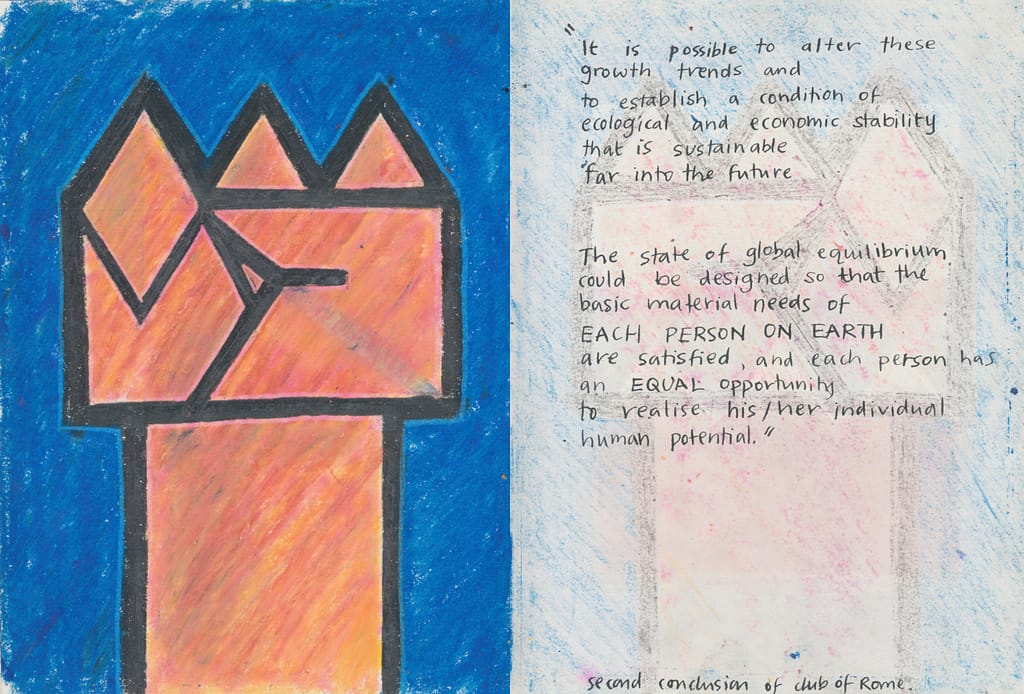 "It is possible to alter these
growth trends and
to establish a condition of
ecological and economic stability
that is sustainable
far into the future
The state of global equilibrium
could be designed so that the
basic material needs of
EACH PERSON ON EARTH
are satisfied, and each person has
an EQUAL opportunity
to realise his/her individual
human potential."
second conclusion of club of Rome.